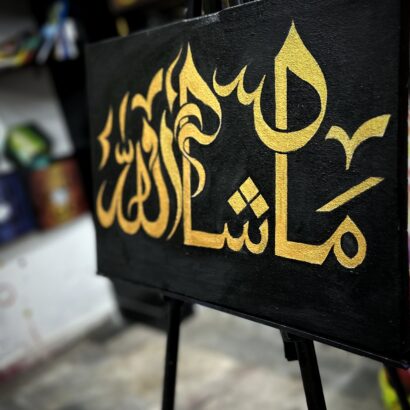 مَا شاء الله